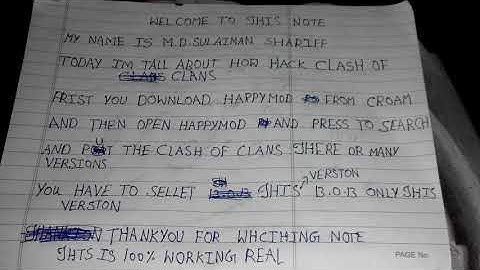 WELCOME TO THIS NOTE
MY NAME IS M.D.SULAIMAN SHARIFF
TODAY IM TALL ABOUT HOW HACK CLASH OF
CLANS
FRIST YOU DOWNLOAD HAPPYMOD FROM CROAM
AND THEN OPEN HAPPYMOD AND PRESS TO SEARCH
AND PUT THE CLASH OF CLANS THERE OR MANY
VERSIONS
YOU HAVE TO SELLET THIS VERSTON 13.0.13 ONLY THIS
VERSTON
THANKYOU FOR WHCIHING NOTE
THTS IS 100% WORKING REAL
PAGE No.